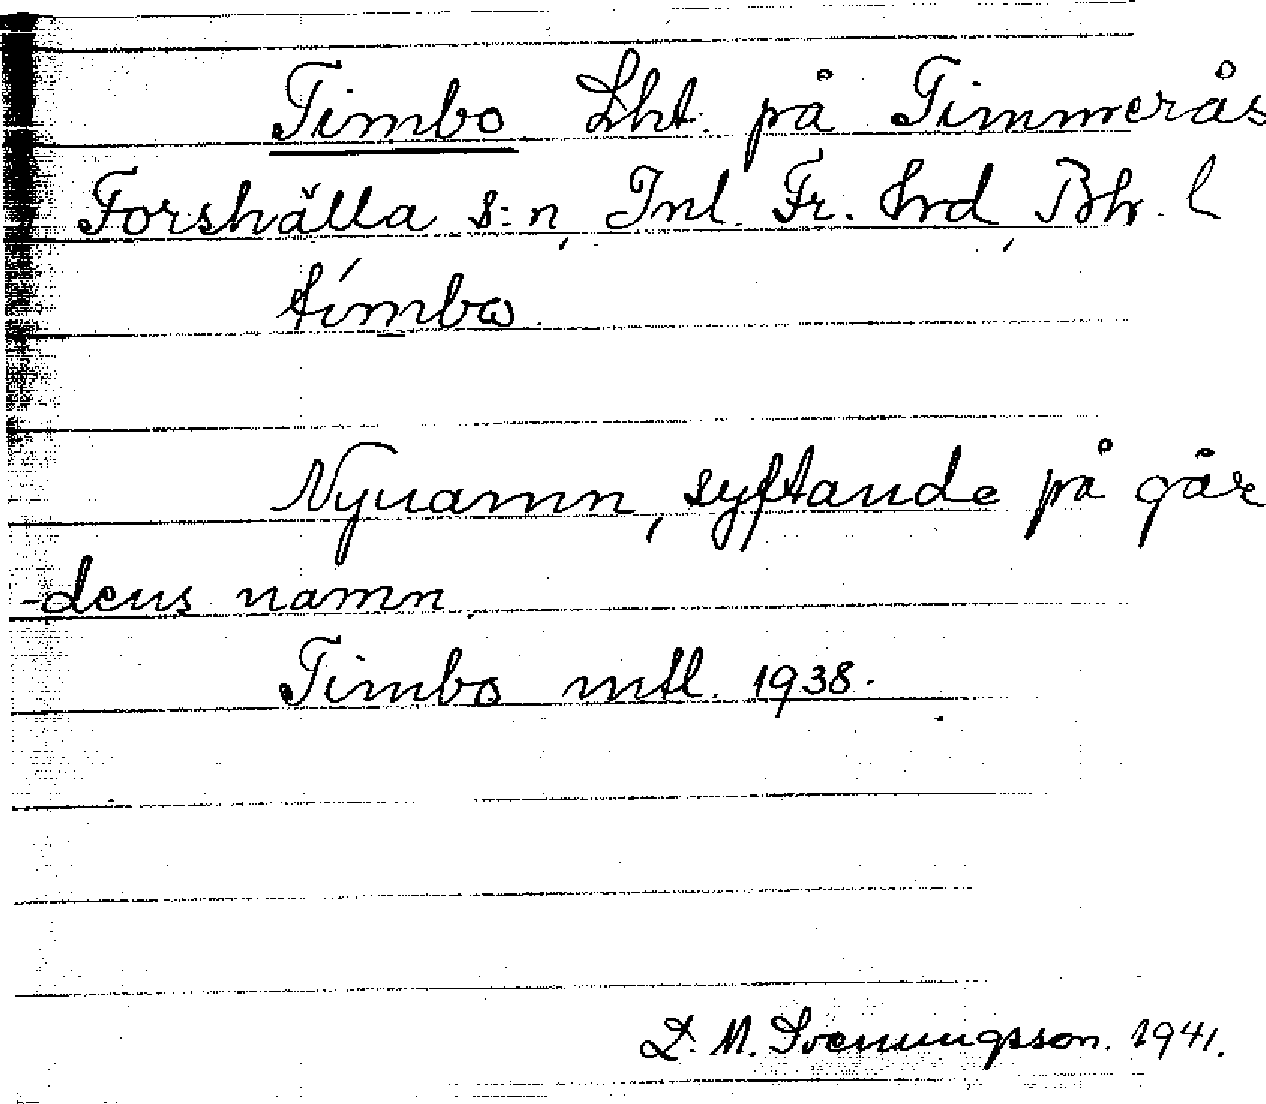 Timbo Lht. på Timmerås
Forshälla s:n, Inl. Fr. hrd, Bh. l
tímbω
Nynamn, syftande på går
-dens namn.
Timbo mtl. 1938.
L. M. Svenungsson. 1941.